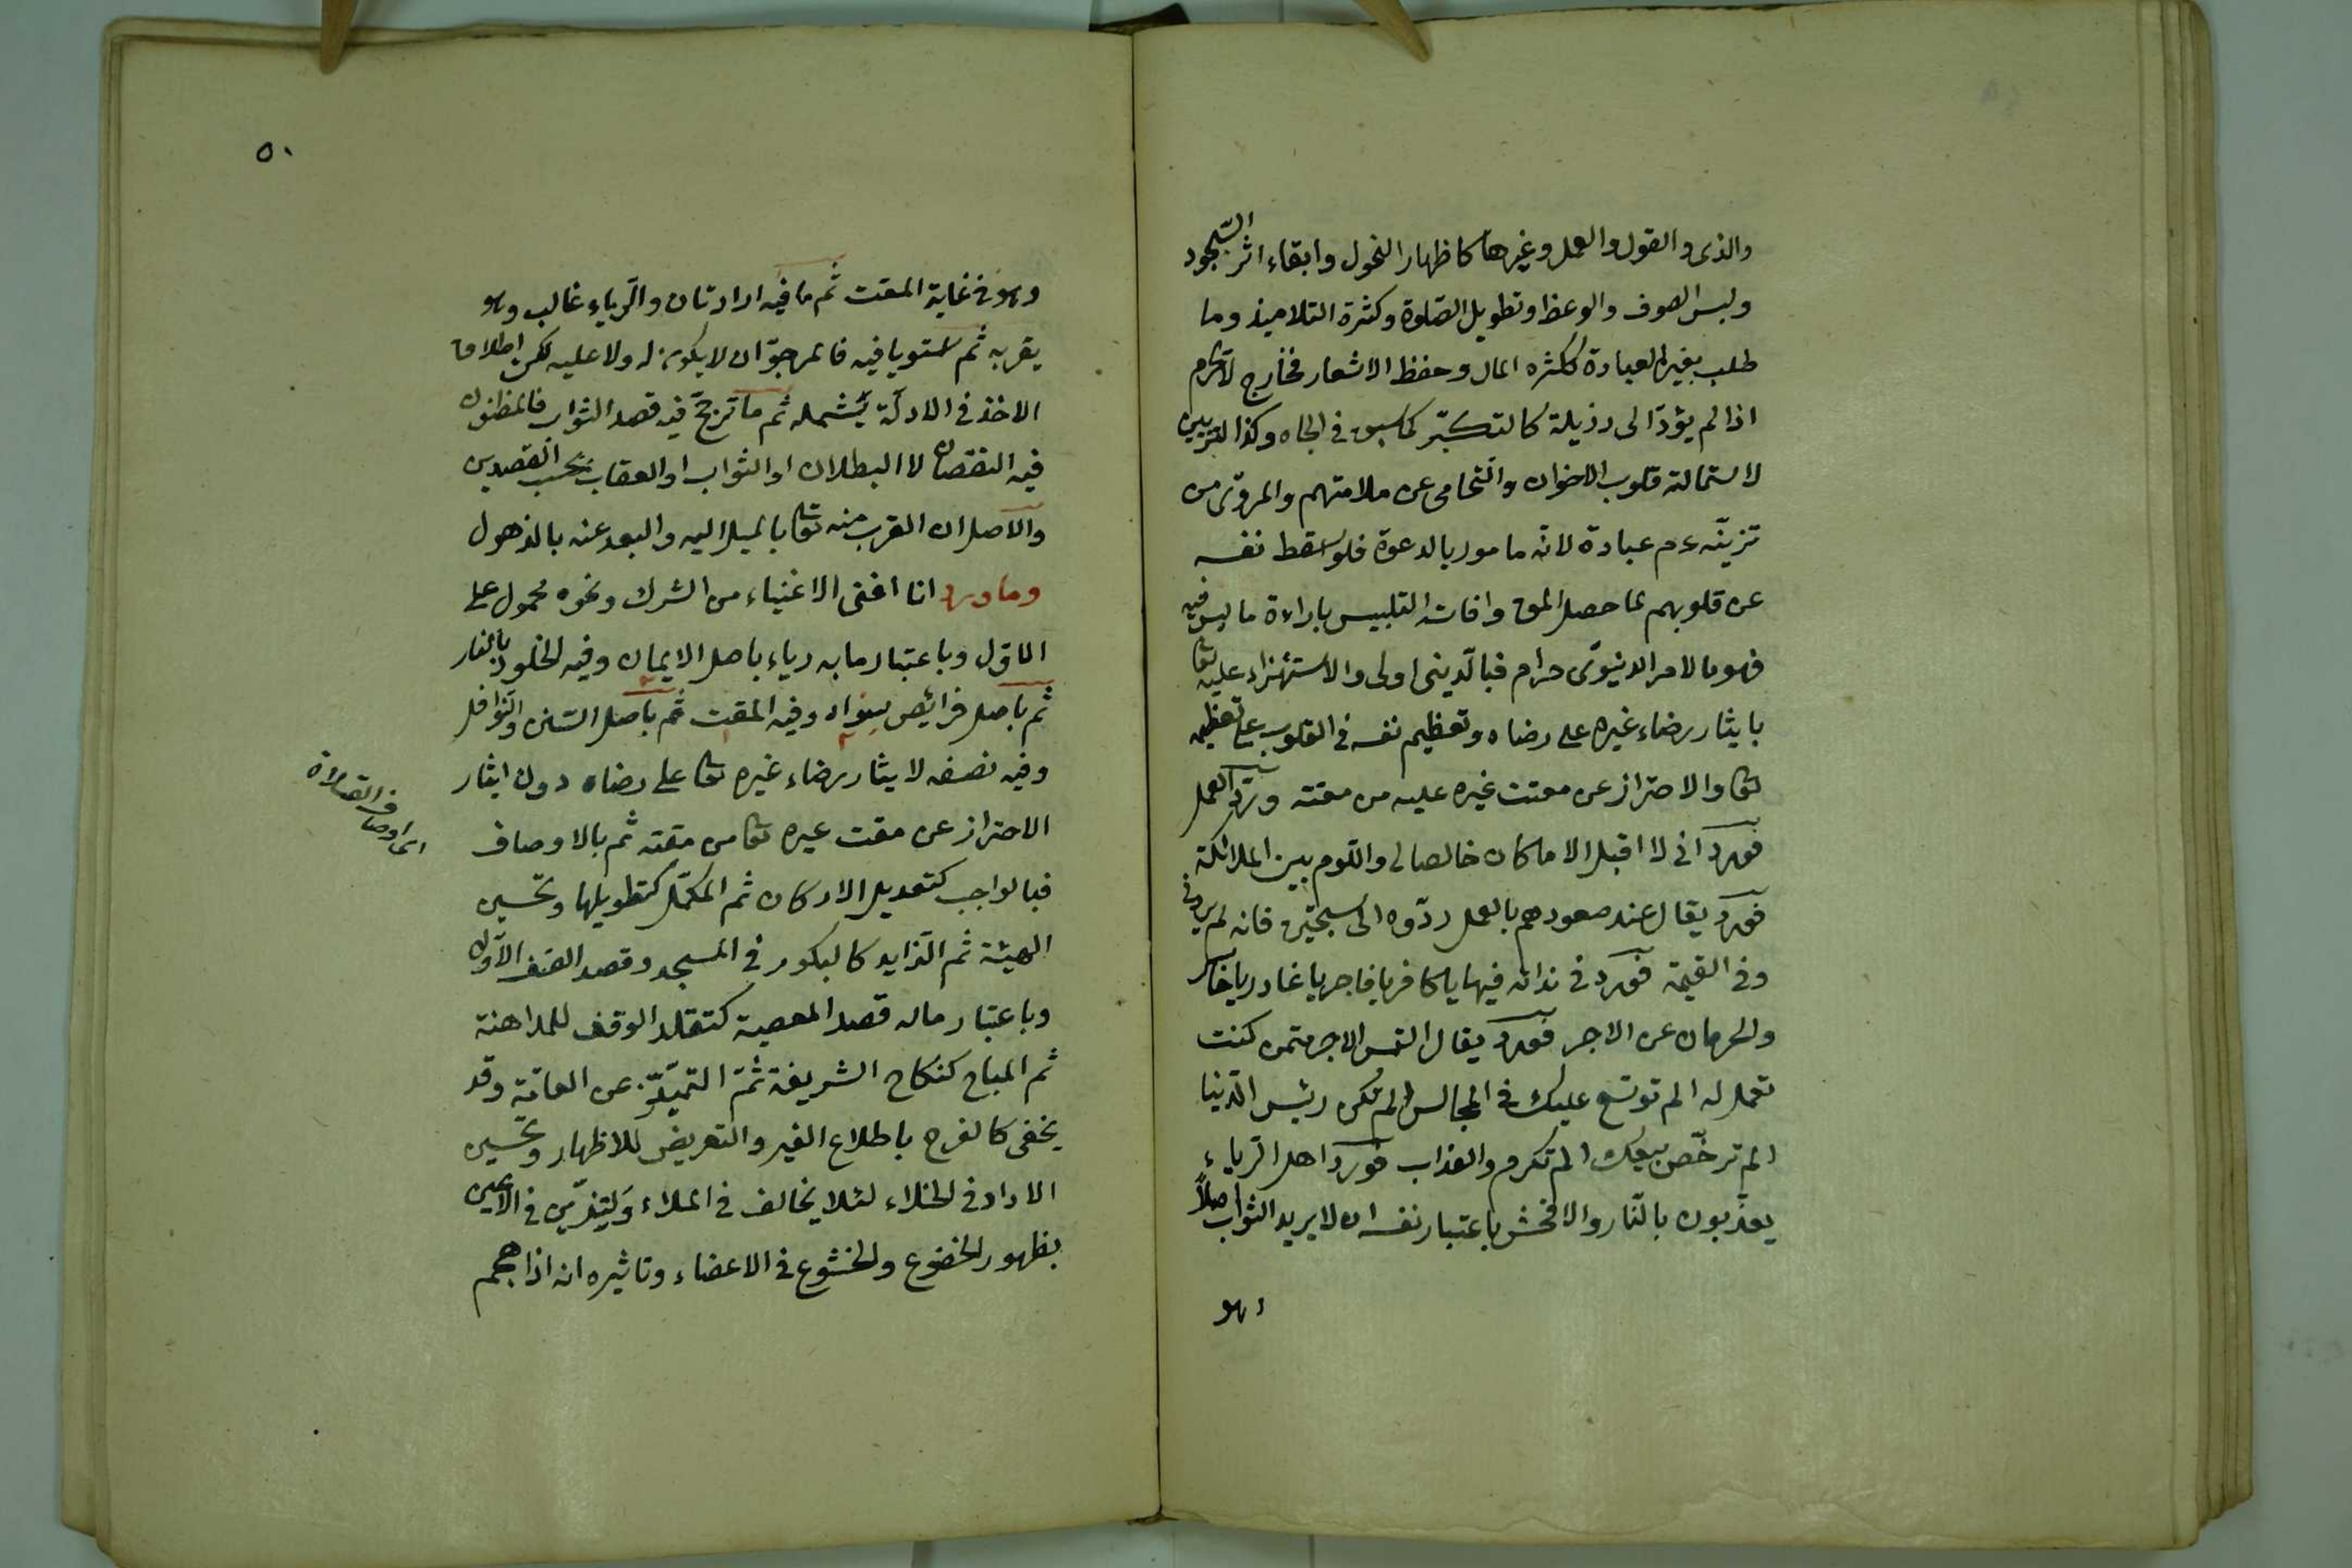 والذى والقول والعمل وغيرها كاظهار النحول وابقاء اثر السّجود
ولبس الصوف والوعظ وتطويل الصّلوة وكثرة التلاميذ وما
طلب بغير العبادة ككثره المال وحفظ الاشعار فخارج لا يحرم
اذا لم يؤدّ الى رذيلة كالتكبّر كما سبق فى الجاه وكذا التزيين
لاستمالة قلوب الاخوان والتحامى عن ملامتهم والمروّى من
تزينّه عم عبادة لانّه مامور بالدعوة فلو سقط نفسه
عن قلوبهم لما حصل الحق وافاته التلبيس باراءة ما ليس فيه
فهو بالامر الدنيوّى حرام فبالدّينى اولى والاستهزاء عليه تعا
بايثار رضاء غيره على رضاه وتعظيم نفسه فى القلوب على تعظيمه
تعا والاحتراز عن مقت غيره عليه من مقته وردّ العمل
فورد انى لا اقبل الا ما كان خالصا لى واللوم بين الملائكة
فورد يقال عند صعودهم بالعمل ردّوه الى سجيّن فانه لم يردنى
وفى القيمة فورد فى ندائه فيها يا كافر يا فاجر يا غادر يا خاسر
والحرمان عن الاجر فورد يقال التمس الاجر ممّن كنت
تعمل له الم توسّع عليك فى المجالس الم تكن رئيس الدّنيا
الم ترخّص بيعك الم تكرم والعذاب فورد اهل الرّياء
يعذّبون بالنّار والافحش باعتبار نفسه ان لا يريد الثواب اصلاً
وهو
٥٠
وهو فى غاية المقت ثم ما فيه ارادتان والرّياء غالب وهو
يقربه ثم استويا فيه فالمرجوّ ان لا يكون له ولا عليه لكن اطلاق
الاخذ فى الادلّة يشمله ثم ما ترجّح فيه قصد الثواب فالمظنون
فيه النقصان لا البطلان او الثواب او العقاب بحسب القصدين
والاصل ان القرب منه تعا بالميل اليه والبعد عنه بالذهول
وما ورد انا اغنى الاغنياء من الشرك ونحوه محمول على
الاوّل وباعتبار ما به رياء باصل الايمان وفيه الخلود بالنار
ثم باصل فرائض سواه وفيه المقت ثم باصل السّنن والنّوافل
وفيه نصفه لايثار رضاء غيره تعا على رضاه دون ايثار
الاحتراز عن مقت غيره تعا من مقته ثم بالاوصاف
اى اوصاف الصلاة
فبالواجب كتعديل الاركان ثم المكمّل كتطويلها وتحسين
الهيئة ثم الزايد كالبكور فى المسجد وقصد الصّف الاوّل
وباعتبار ماله قصد المعصية كتقلد الوقف للمداهنة
ثم المباح كنكاح الشريفة ثمّ التميّز عن العامّة وقد
يخفى كالفرح باطلاع الغير والتعريض للاظهار وتحسين
الاداء فى الخلاء لئلا يخالف فى الملاء وليتزيّن فى الاعين
بظهور الخضوع والخشوع فى الاعضاء وتاثيره انه اذا هجم